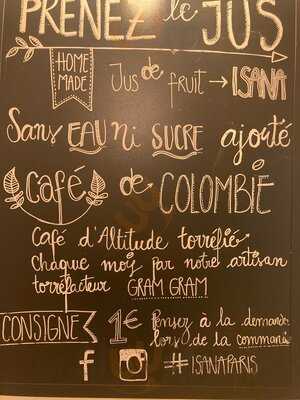 PRENEZ le JUS
HOME MADE
Jus de fruit → ISANA
Sans EAU ni SUCRE ajouté
Café de COLOMBIE
Café d'Altitude torréfié
Chaque mois par notre artisan
torréfacteur GRAM GRAM
CONSIGNE 1€ Pensez à la demander
lors de la commande
f #ISANAPARIS